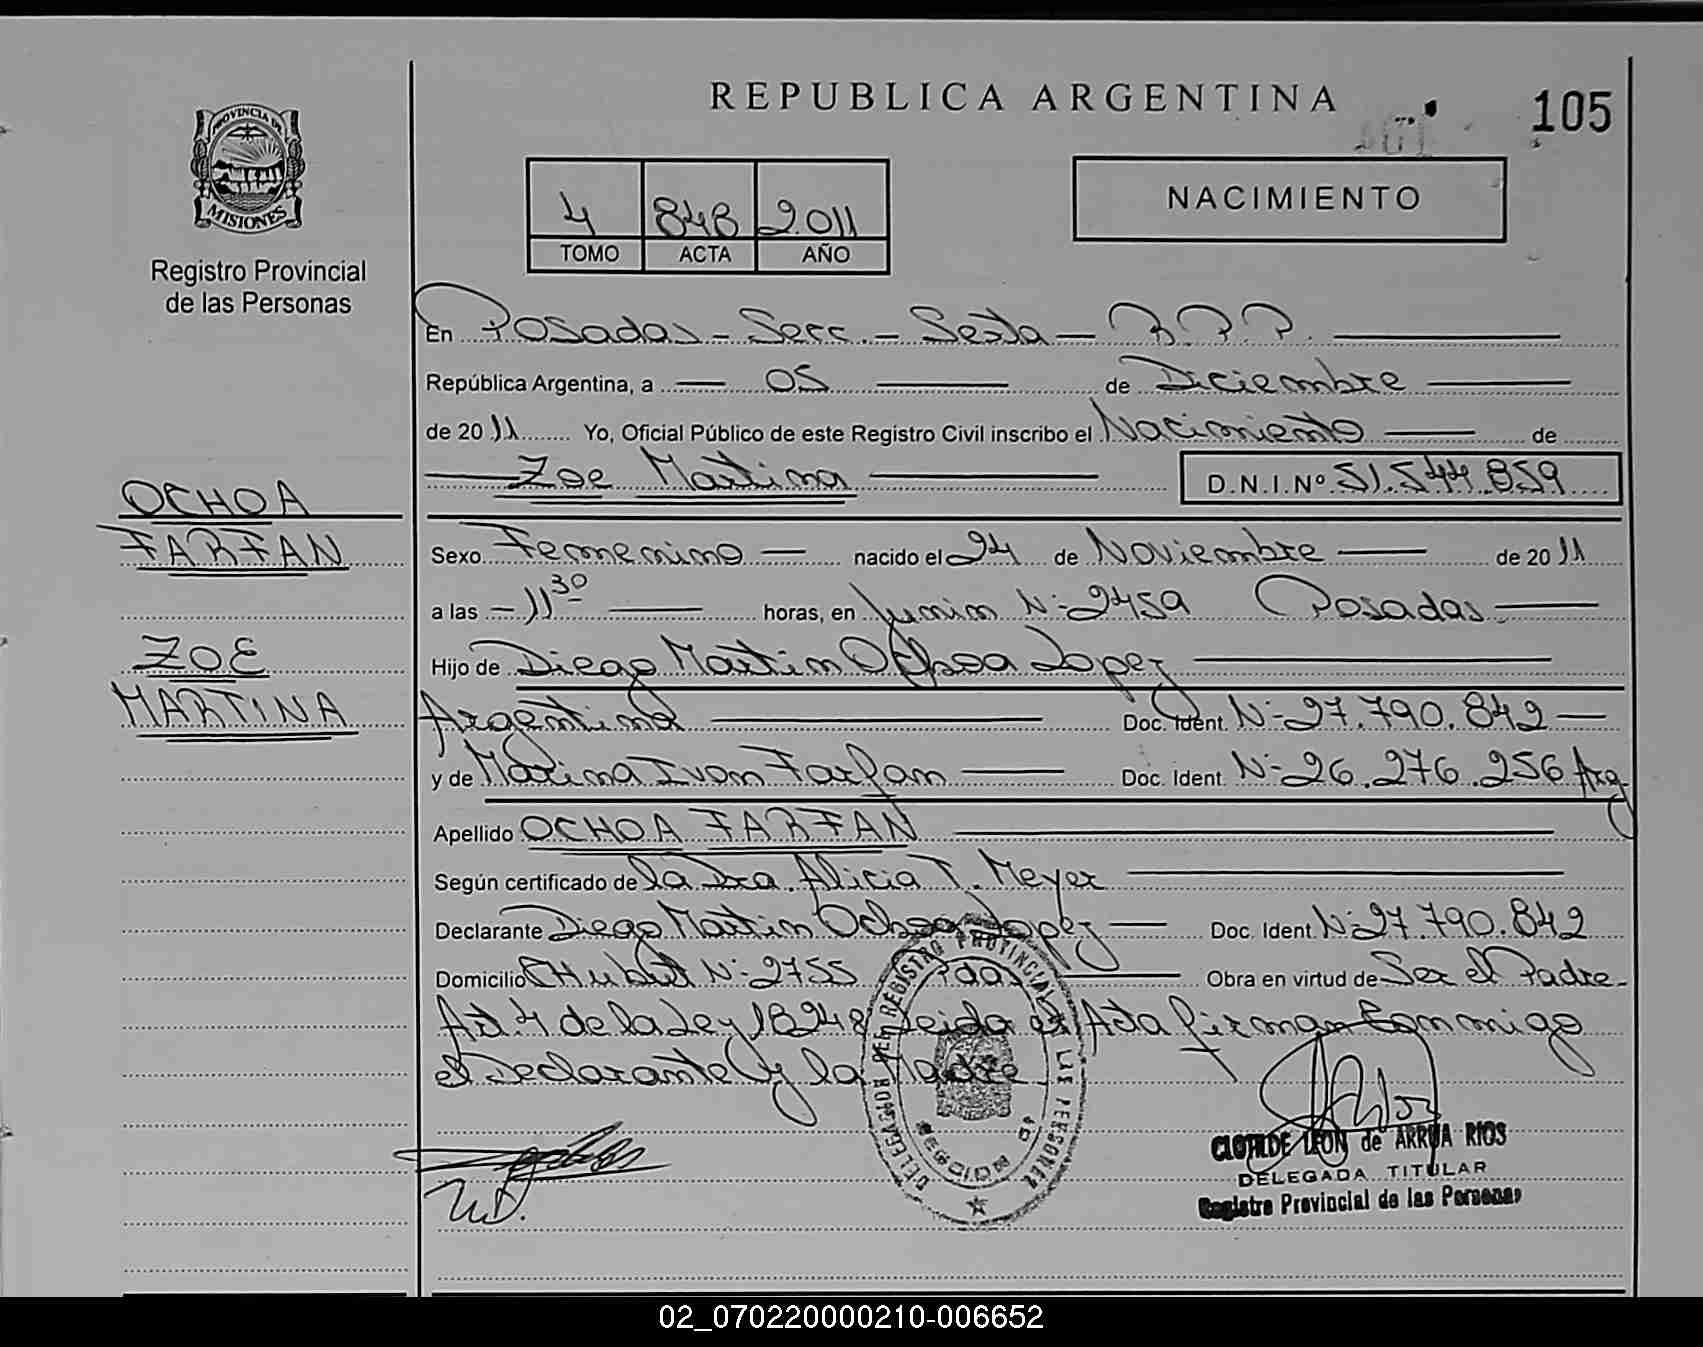 REPUBLICA ARGENTINA
105
PROVINCIA DE
MISIONES
Registro Provincial
de las Personas
4 848 2.011
TOMO ACTA AÑO
NACIMIENTO
En Posadas - Secc. - Sexta - R.P.P.
República Argentina, a 05 de Diciembre
de 2011 Yo, Oficial Público de este Registro Civil inscribo el Nacimiento de
Zoe Martina D.N.I. Nº 51.544.859
OCHOA
FARFAN
ZOE
MARTINA
Sexo Femenino nacido el 24 de Noviembre de 2011
a las 11 30 horas, en Junin Nº 2459 Posadas
Hijo de Diego Martin Ochoa Lopez
Argentina Doc. Ident. Nº 27.790.842
y de Marina Ivon Farfan Doc. Ident. Nº 26.276.256 Arg
Apellido OCHOA FARFAN
Según certificado de la Dra. Alicia T. Meyer
Declarante Diego Martin Ochoa Lopez Doc. Ident. Nº 27.790.842
Domicilio CHubut Nº 2755 Pdas Obra en virtud de Ser el Padre-
Art 4 de la Ley 18248 Leida el Acta firman Conmigo
el Declarante y la Madre
DELEGACION DEL REGISTRO PROVINCIAL DE LAS PERSONAS
CLOTILDE LEON de ARRUA RIOS
DELEGADA TITULAR
Registro Provincial de las Personas
02_070220000210-006652